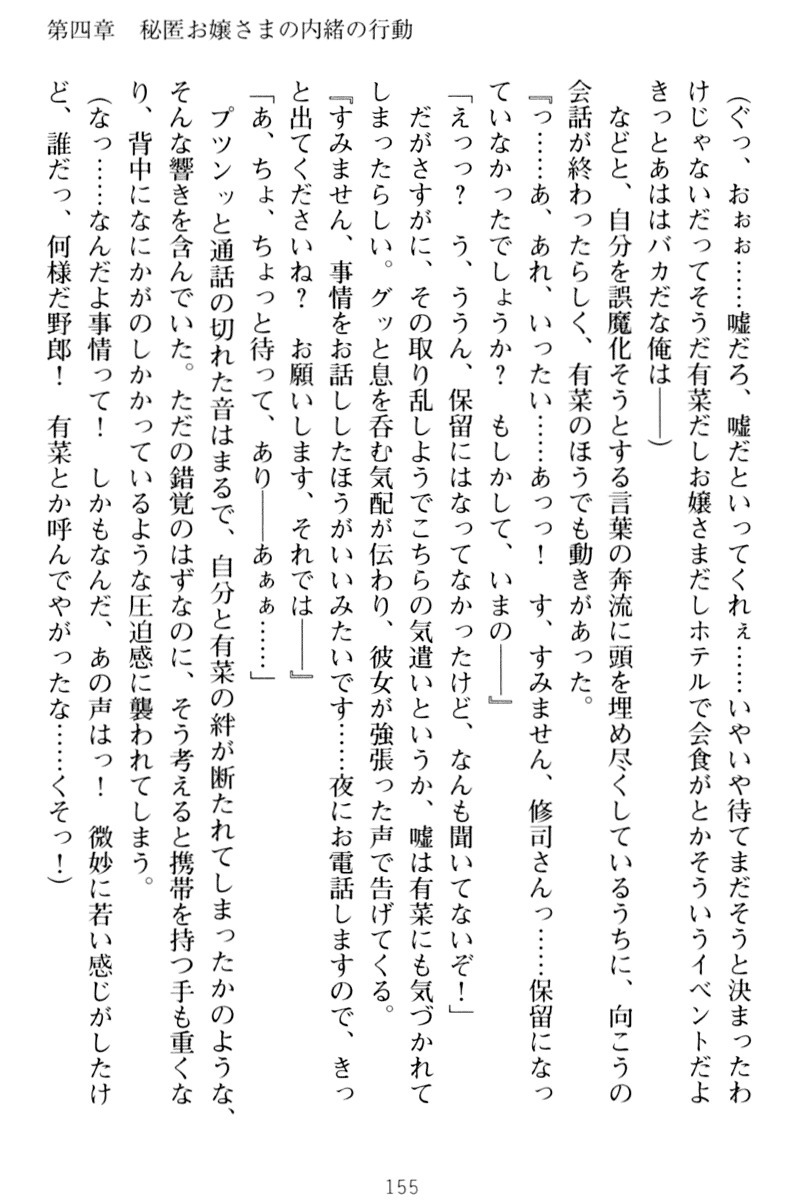 第四章　秘匿お嬢さまの内緒の行動
（ぐっ、おぉぉ……嘘だろ、嘘だといってくれぇ……いやいや待てまだそうと決まったわ
けじゃないだってそうだ有菜だしお嬢さまだしホテルで会食がとかそういうイベントだよ
きっとあははバカだな俺は――）
　などと、自分を誤魔化そうとする言葉の奔流に頭を埋め尽くしているうちに、向こうの
会話が終わったらしく、有菜のほうでも動きがあった。
『っ……あ、あれ、いったい……あっっ！　す、すみません、修司さんっ……保留になっ
ていなかったでしょうか？　もしかして、いまの――』
「えっっ？　う、ううん、保留にはなってなかったけど、なんも聞いてないぞ！」
　だがさすがに、その取り乱しようでこちらの気遣いというか、嘘は有菜にも気づかれて
しまったらしい。グッと息を呑む気配が伝わり、彼女が強張った声で告げてくる。
『すみません、事情をお話ししたほうがいいみたいです……夜にお電話しますので、きっ
と出てくださいね？　お願いします、それでは――』
「あ、ちょ、ちょっと待って、あり――あぁぁ……」
　プツンッと通話の切れた音はまるで、自分と有菜の絆が断たれてしまったかのような、
そんな響きを含んでいた。ただの錯覚のはずなのに、そう考えると携帯を持つ手も重くな
り、背中になにかがのしかかっているような圧迫感に襲われてしまう。
（なっ……なんだよ事情って！　しかもなんだ、あの声はっ！　微妙に若い感じがしたけ
ど、誰だっ、何様だ野郎！　有菜とか呼んでやがったな……くそっ！）
155